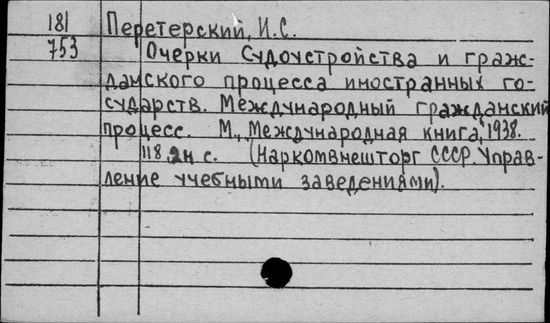 181 Перетерский, И.С.
753 Очерки судоустройства и граж-
данского процесса иностранных го-
сударств. Международный гражданский
процесс. М., Международная книга, 1938.
118.2н с. (Наркомвнешторг СССР. Управ-
ление учебными заведениями).